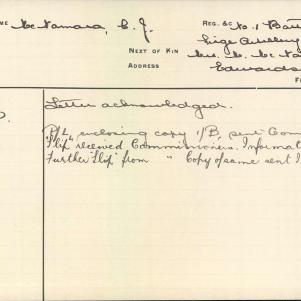 ME Mc Namara, C. J. REG. &c No. 1 Batt
NEXT OF KIN Siege Artillery
ADDRESS Mrs. C. Mc Na
Edwards
Letter acknowledged.
P/L enclosing copy 1/B, sent Com
"Slip" received Commissioners. Informat
Further "Slip" from " Copy of same sent